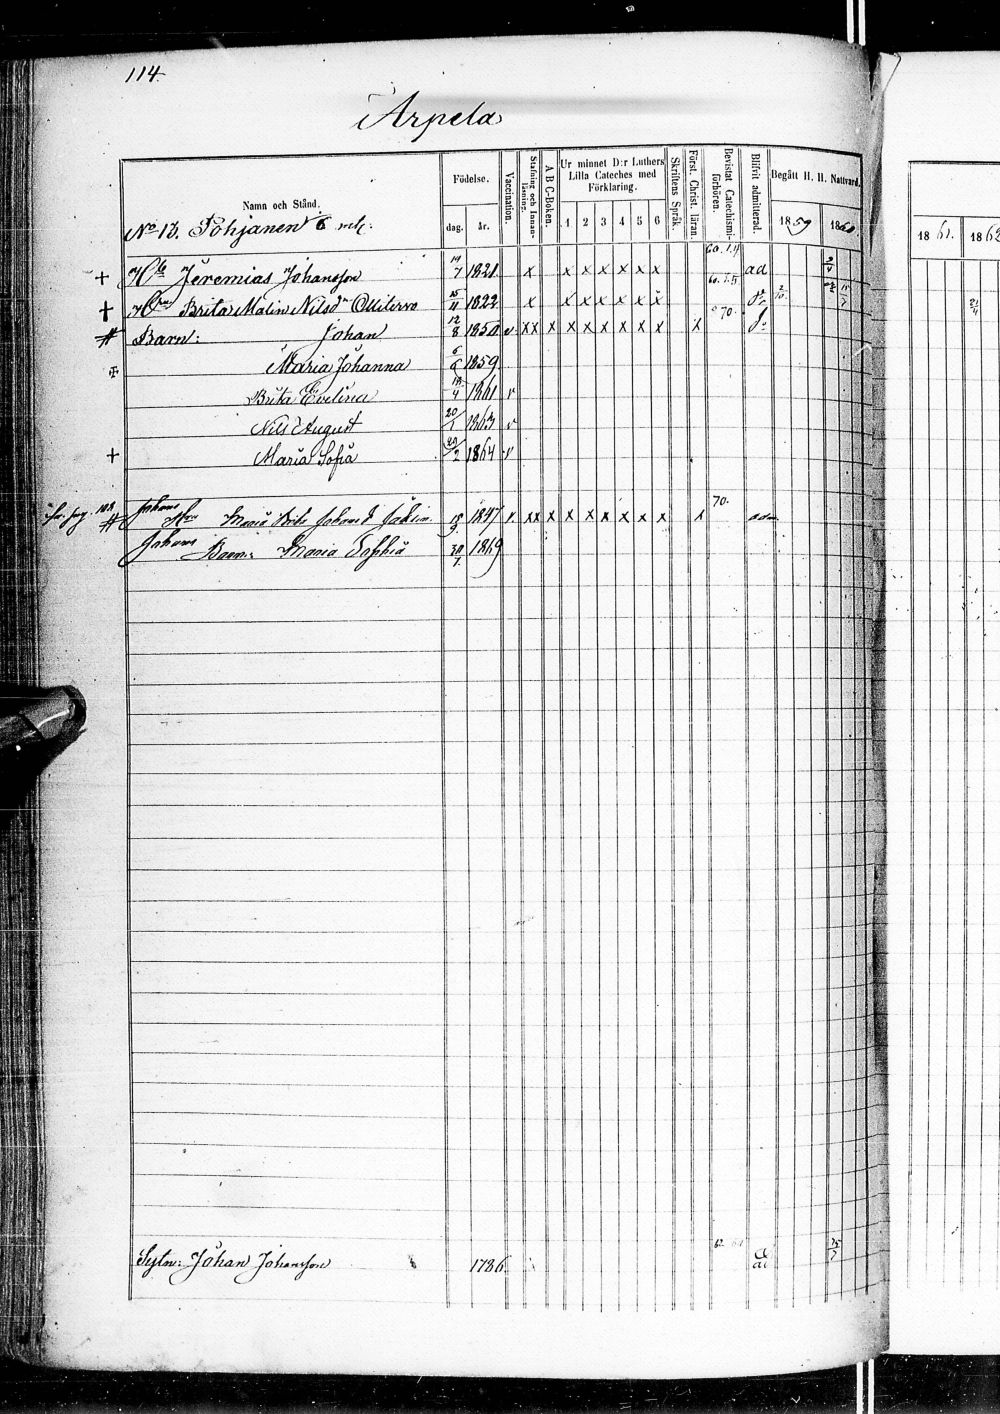 114.
Arpela
Namn och Stånd.
Födelse.
dag. år.
Vaccination.
Stafning och Innan-läsning.
A B C-Boken.
Ur minnet D:r Luthers Lilla Cateches med Förklaring.
1 2 3 4 5 6
Skriftens Språk.
Först. Christ. läran.
Bevistat Catechismi-förhören.
Blifvit admitterad.
Begått H. H. Nattvard.
1859 1860. 1861. 1862
No 13. Pohjanen 6
+ Jeremias Johansson 19/7 1821 x x x x x x x ad
† Hru Brita Malin Nilsdr Ollilervo 15/11 1822 x x x x x x x do 2/10
# Barn: Johan 12/8 1850 v xx x x x x x x x x 70. do
Maria Johanna 1859
Brita Evelina 18/4 1861 v
Nils August 20/1 1863 v
+ Maria Sofia 29/2 1864 v
102 Johans
# Hru Maria Brita Johansd 18/9 1847 v. xx x x x x x x x x 70. adm.
Johans Barn: Maria Sophia 30/7 1869
Sytn: Johan Johansson 1786 ad 25/7